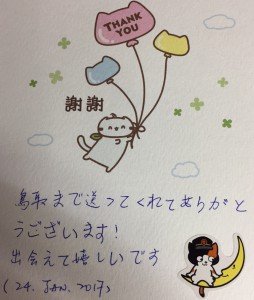 THANK
YOU
謝謝
鳥取まで送ってくれてありがと
うございます!
出会えて嬉しいです
(24. JAN. 2017)